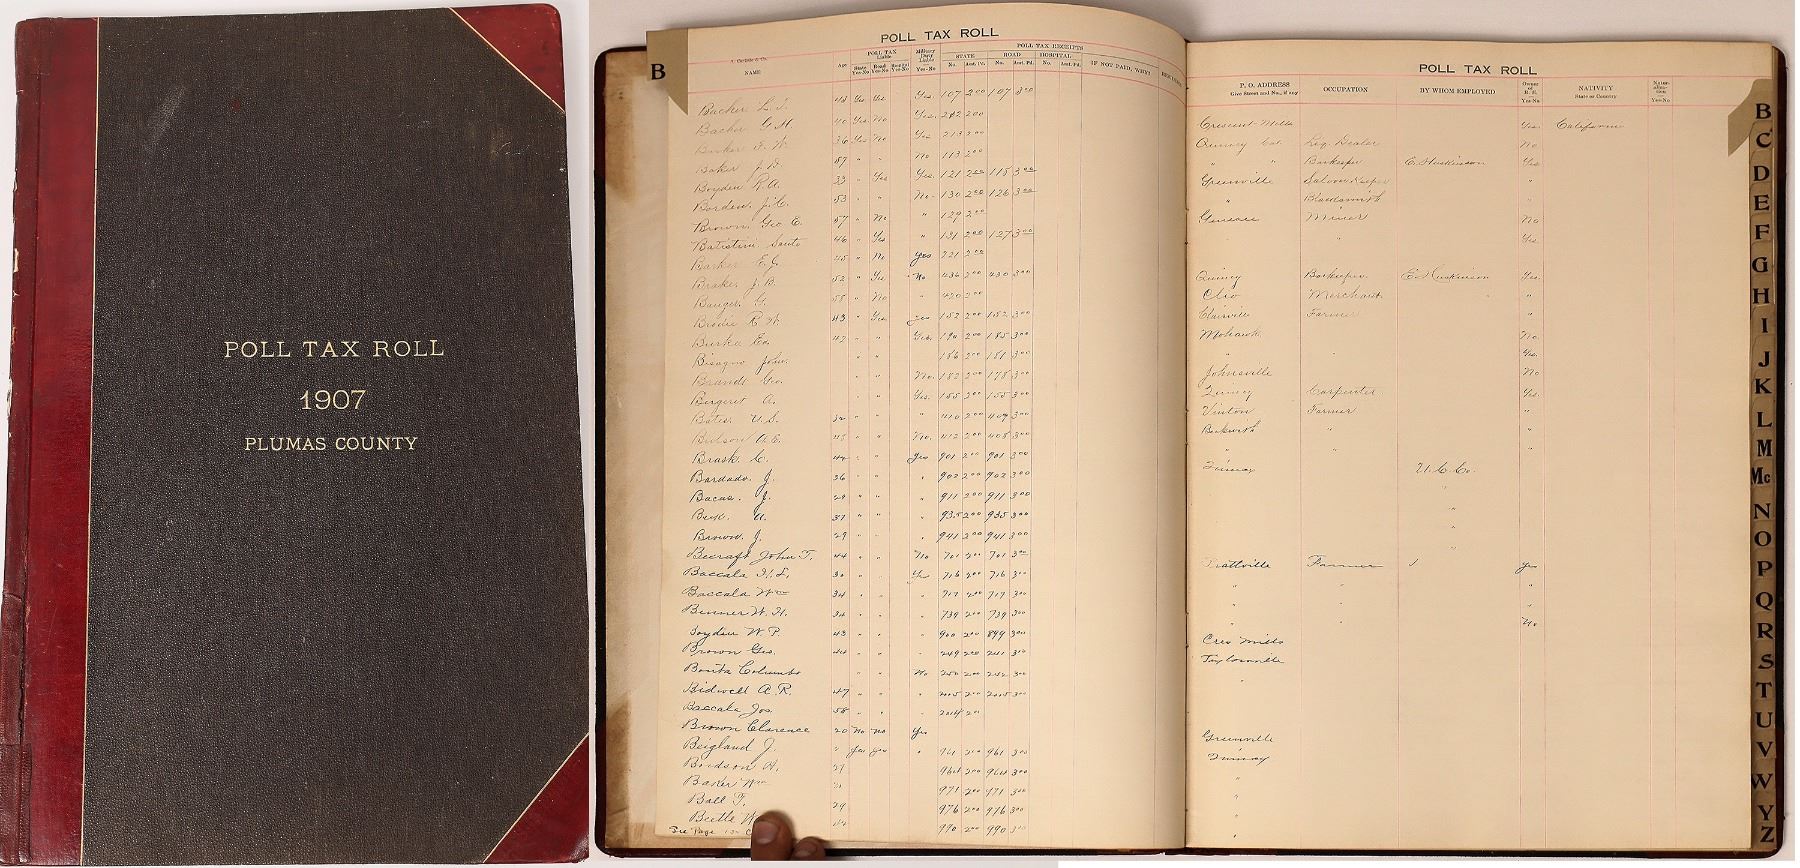 POLL TAX ROLL
1907
PLUMAS COUNTY
POLL TAX ROLL
B
NAME
Age
POLL TAX
Liable
State Road Hospital
Yes-No Yes-No Yes-No
Military Duty Liable
Yes-No
POLL TAX RECEIPTS
STATE ROAD HOSPITAL
No. Amt. Pd. No. Amt. Pd. No. Amt. Pd.
IF NOT PAID, WHY?
Backer L. I. 43 Yes Yes Yes. 107 2 00 107 3 00
Backer G. H. 40 Yes. No Yes. 202 2 00
36 Yes No Yes 213 2 00
Baker J. D. 59 " " No 113 2 00
Boyden R. A. 33 " Yes Yes. 121 2 00 115 3 00
Borden, J. C. 53 " " No. 130 2 00 126 3 00
Brown, Geo E. 57 " No " 129 2 00
Batistini Santo 46 " Yes " 131 2 00 127 3 00
Barker E. J. 45 " No Yes 221 2 00
Braker J. B. 52 " Yes No 436 2 00 430 3 00
Banger G. 55 " No " 420 2 00
Brodie R. W. 43 " Yes yes 152 2 00 152 3 00
Burke Ed. 47 " " Yes. 190 2 00 185 3 00
Bisagno John. " " 186 2 00 181 3 00
Brandt Geo. " " No. 182 2 00 178 3 00
Bergeret A. " " Yes. 155 2 00 155 3 00
Bates U. S. 32 " " " 410 2 00 409 3 00
A. E. 45 " " No. 412 2 00 408 3 00
Brask. C. 44 " " Yes 901 2 00 901 3 00
Bardado. J. 36 " " " 902 2 00 902 3 00
Bacas. J. 29 " " " 911 2 00 911 3 00
A. 37 " " " 935 2 00 935 3 00
Brown. J. 29 " " " 941 2 00 941 3 00
Becraft John T. 44 " " No 701 2 00 701 3 00
Baccala H. L. 30 " " Yes 716 2 00 716 3 00
Baccala Wm 34 " " " 717 2 00 717 3 00
Benner W. H. 34 " " " 739 2 00 739 3 00
Boyden W. P. 43 " " " 900 2 00 899 3 00
Brown Geo. 44 " " " 249 2 00 241 3 00
Bonta Columbo " " No 250 2 00 242 3 00
Bidwell A. R. 47 " " " 2005 2 00 2005 3 00
Baccala Jos. 58 " " " 2004 2 00
Brown Clarence 20 No No Yes
Beigland J. " Yes Yes " 961 2 00 961 3 00
Bondson A. 27 964 2 00 964 3 00
Baker Wm 21 971 2 00 971 3 00
Ball F. 29 976 2 00 976 3 00
Beetle W 990 2 00 990 3 00
See Page
POLL TAX ROLL
P. O. ADDRESS
Give Street and No., if any
OCCUPATION
BY WHOM EMPLOYED
Owner of R. E.
Yes-No
NATIVITY
State or Country
Natur-aliza-tion
Yes-No
Crescent Mills Yes. California
Quincy Cal. Liq. Dealer No
" " Barkeeper E. Huskinson Yes
Greenville Saloon Keeper "
" Blacksmith "
Genesee Miner No
" " Yes.
Quincy Barkeeper E. Huskinson Yes.
Clio Merchant " "
Clairville Farmer "
Mohawk No.
" " Yes.
Johnsville No
Quincy Carpenter Yes.
Vinton Farmer "
Beckwith " "
" " "
U. C. Co.
"
"
"
"
Prattville Farmer Yes
" " "
" " "
" " No
Cres Mills
Taylorsville
"
Greenville
"
"
"
"
B
C
D
E
F
G
H
I
J
K
L
M
Mc
N
O
P
Q
R
S
T
U
V
W
Y
Z